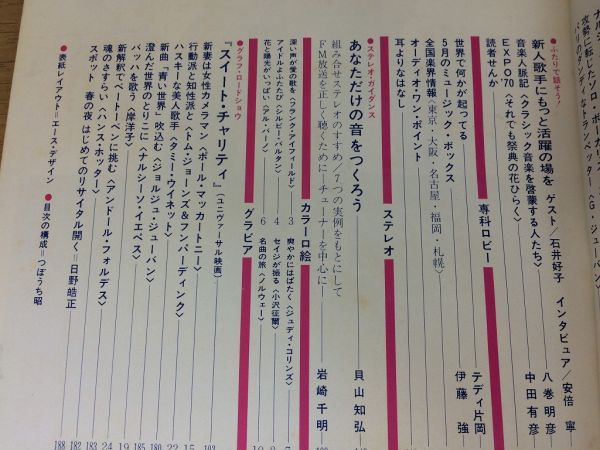 攻勢に転じたソロ・ボーカリス
●ふたりで話そう！
新人歌手にもっと活躍の場を　ゲスト／石井好子　インタビュア／安倍　寧
音楽人脈記〈クラシック音楽を啓蒙する人たち〉　八巻明彦
EXPO'70〈それでも祭典の花ひらく〉　中田有彦
読者せんか
専科ロビー
世界で何かが起ってる　テディ片岡
5月のミュージック・ボックス　伊藤　強
全国楽界情報〈東京・大阪・名古屋・福岡・札幌〉
オーディオ・ワン・ポイント
耳よりなはなし
ステレオ
●ステレオ・ガイダンス
あなただけの音をつくろう　貝山知弘
組み合せステレオのすすめ／7つの実例をもとにして
FM放送を正しく聴くために／チューナーを中心に　岩崎千明
カラー口絵
深い声が愛の歌を〈フランク・アイフィールド〉　3
爽やかにはばたく〈ジュディ・コリンズ〉　7
アイドルよふたたび〈シルビー・バルタン〉　4
セイジが振る〈小沢征爾〉　8
花と陽光がいっぱい〈アル・バーノ〉　6
名曲の旅〈ノルウェー〉　10
グラビア
●グラフ・ロードショウ
『スイート・チャリティ』（ユニヴァーサル映画）　103
新妻は女性カメラマン〈ポール・マッカートニー〉　15
行動派と知性派と〈トム・ジョーンズ＆フンパーディンク〉　22
ハスキーな美人歌手〈タミー・ウイネット〉　180
新曲「青い世界」吹込む〈ジョルジュ・ジューバン〉　185
澄んだ世界のとりこに〈ナルシーソ・イエペス〉　19
バッハを歌う〈岸洋子〉　24
新解釈でベートーベンに挑む〈アンドール・フォルデス〉　183
魂のさすらい〈ハンス・ホッター〉　182
スポット　春の夜　はじめてのリサイタル開く＝日野皓正　188
●表紙レイアウト＝エース・デザイン　●目次の構成＝つぼうち昭